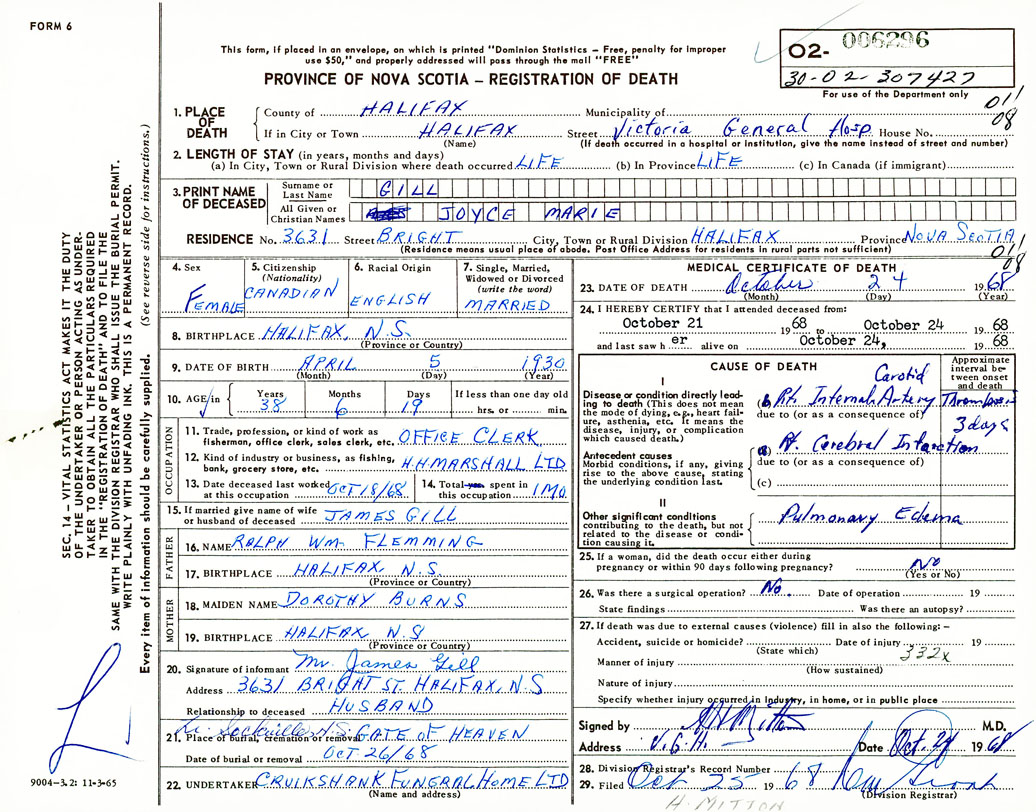 FORM 6
This form, if placed in an envelope, on which is printed "Dominion Statistics – Free, penalty for improper
use $50," and properly addressed will pass through the mail "FREE"
PROVINCE OF NOVA SCOTIA – REGISTRATION OF DEATH
O2- 006296
30-02-307427
For use of the Department only
011
08
1. PLACE OF DEATH
County of HALIFAX Municipality of
If in City or Town HALIFAX Street Victoria General Hosp. House No.
(Name) (If death occurred in a hospital or institution, give the name instead of street and number)
2. LENGTH OF STAY (in years, months and days)
(a) In City, Town or Rural Division where death occurred LIFE (b) In Province LIFE (c) In Canada (if immigrant)
3. PRINT NAME OF DECEASED
Surname or Last Name GILL
All Given or Christian Names JOYCE MARIE
RESIDENCE No. 3631 Street BRIGHT City, Town or Rural Division HALIFAX Province NOVA SCOTIA
(Residence means usual place of abode. Post Office Address for residents in rural parts not sufficient)
011
08
4. Sex FEMALE
5. Citizenship (Nationality) CANADIAN
6. Racial Origin ENGLISH
7. Single, Married, Widowed or Divorced (write the word) MARRIED
8. BIRTHPLACE HALIFAX, N.S.
(Province or Country)
9. DATE OF BIRTH APRIL 5 1930
(Month) (Day) (Year)
10. AGE in Years Months Days If less than one day old
38 6 19 hrs. or min.
OCCUPATION
11. Trade, profession, or kind of work as
fisherman, office clerk, sales clerk, etc. OFFICE CLERK
12. Kind of industry or business, as fishing,
bank, grocery store, etc. H.H. MARSHALL LTD
13. Date deceased last worked
at this occupation OCT 18/68
14. Total yrs. spent in
this occupation 1 MO.
15. If married give name of wife
or husband of deceased JAMES GILL
FATHER
16. NAME RALPH WM. FLEMMING
17. BIRTHPLACE HALIFAX, N.S.
(Province or Country)
MOTHER
18. MAIDEN NAME DOROTHY BURNS
19. BIRTHPLACE HALIFAX N.S
(Province or Country)
20. Signature of informant Mr. James Gill
Address 3631 BRIGHT ST. HALIFAX, N.S
Relationship to deceased HUSBAND
Sackville N.S.
21. Place of burial, cremation or removal GATE OF HEAVEN
Date of burial or removal OCT 26/68
22. UNDERTAKER CRUIKSHANK FUNERAL HOME LTD
(Name and address)
MEDICAL CERTIFICATE OF DEATH
23. DATE OF DEATH October 24 1968
(Month) (Day) (Year)
24. I HEREBY CERTIFY that I attended deceased from:
October 21 1968 to October 24 1968
and last saw her alive on October 24, 1968
CAUSE OF DEATH
Approximate interval between onset and death
I
Disease or condition directly leading to death (This does not mean
the mode of dying, e.g., heart failure, asthenia, etc. It means the
disease, injury, or complication
which caused death.)
Carotid
Rt. Internal Artery Thrombosis
due to (or as a consequence of)
3 days
Antecedent causes
Morbid conditions, if any, giving
rise to the above cause, stating
the underlying condition last.
Rt. Cerebral Infarction
due to (or as a consequence of)
(c)
II
Other significant conditions
contributing to the death, but not
related to the disease or condition causing it.
Pulmonary Edema
25. If a woman, did the death occur either during
pregnancy or within 90 days following pregnancy? No
(Yes or No)
26. Was there a surgical operation? No. Date of operation 19
State findings Was there an autopsy?
27. If death was due to external causes (violence) fill in also the following: –
Accident, suicide or homicide? Date of injury 19
(State which)
332x
Manner of injury
(How sustained)
Nature of injury
Specify whether injury occurred in Industry, in home, or in public place
Signed by M.D.
Address V.G.H. Date Oct. 24 1968
28. Division Registrar's Record Number
29. Filed Oct 25 1968
(Division Registrar)
H. MITTON
SEC. 14 – VITAL STATISTICS ACT MAKES IT THE DUTY
OF THE UNDERTAKER OR PERSON ACTING AS UNDER-
TAKER TO OBTAIN ALL THE PARTICULARS REQUIRED
IN THE "REGISTRATION OF DEATH" AND TO FILE THE
SAME WITH THE DIVISION REGISTRAR WHO SHALL ISSUE THE BURIAL PERMIT.
WRITE PLAINLY WITH UNFADING INK. THIS IS A PERMANENT RECORD.
Every item of information should be carefully supplied. (See reverse side for instructions.)
9004-3.2: 11-3-65